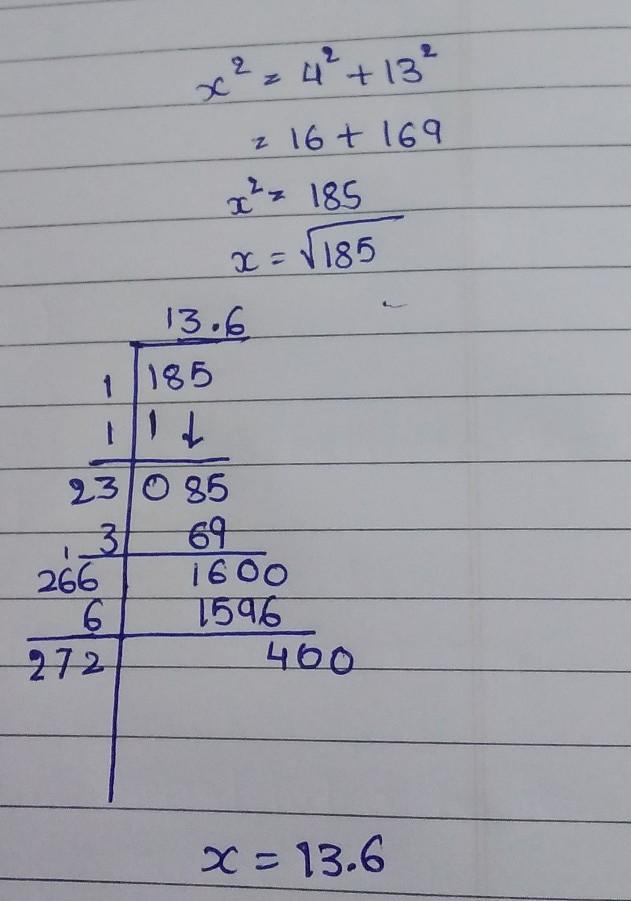 x² = 4² + 13²
= 16 + 169
x² = 185
x = √185
13.6
1 185
1 1 ↓
23 0 85
3 69
1
266 1600
6 1596
272 400
x = 13.6